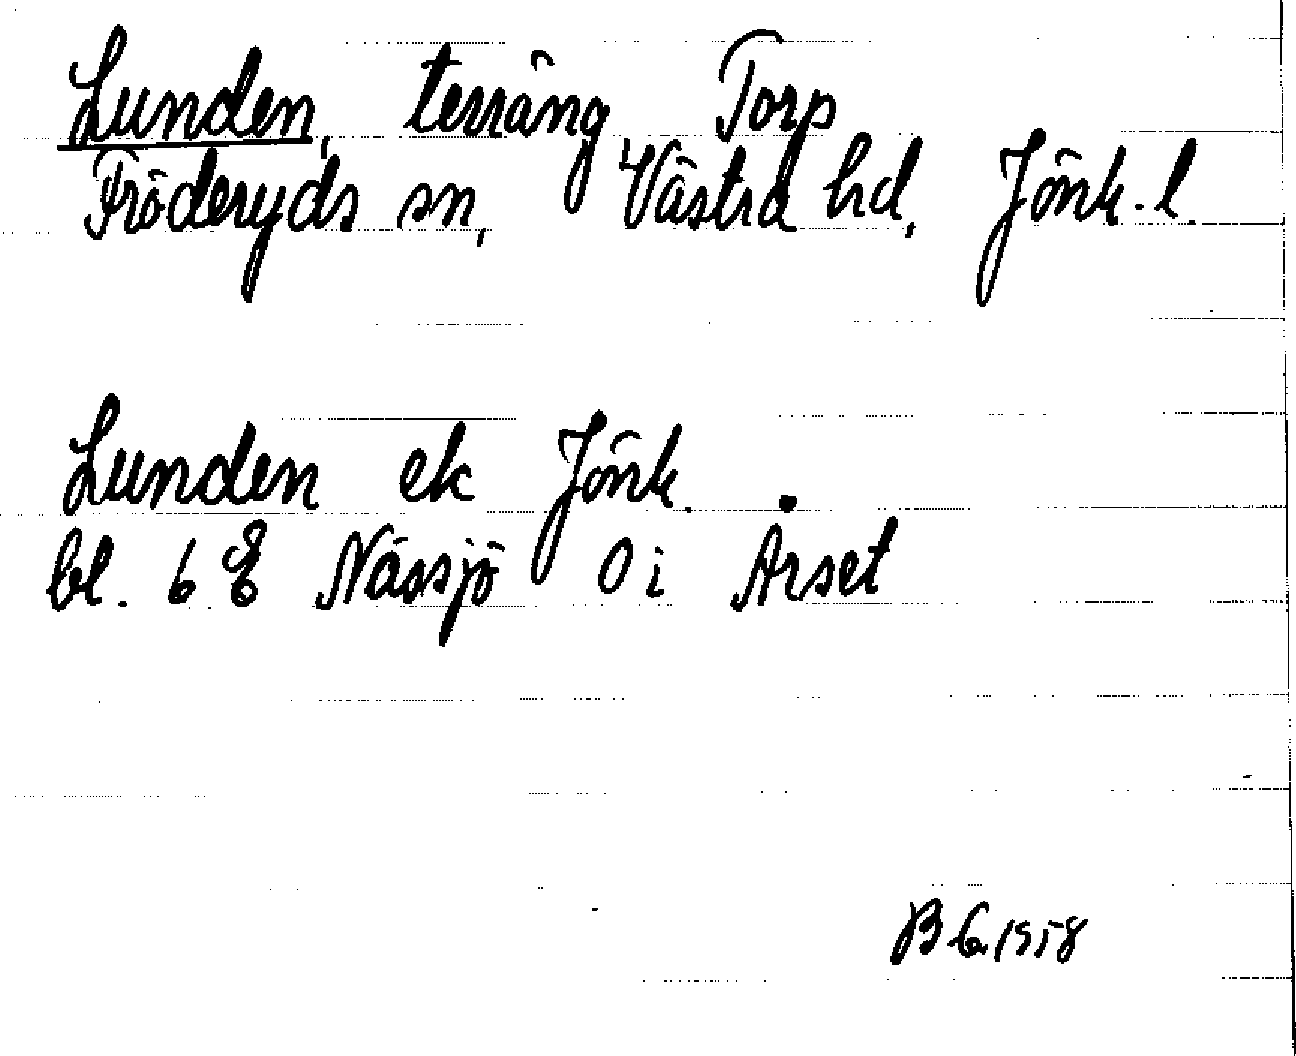 Lunden, terräng Torp
Fröderyds sn, Västra hd, Jönk. l.
Lunden ek Jönk.
bl. 6 E Nässjö Ö i Årset
BG 1958